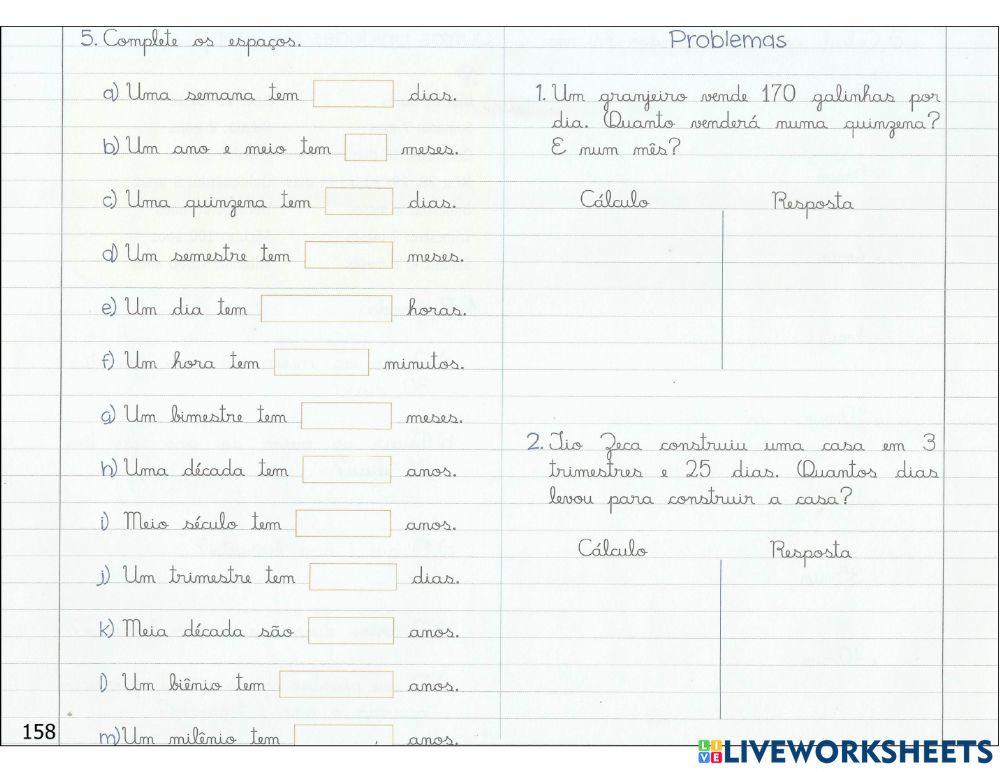 5. Complete os espaços.
a) Uma semana tem dias.
b) Um ano e meio tem meses.
c) Uma quinzena tem dias.
d) Um semestre tem meses.
e) Um dia tem horas.
f) Um hora tem minutos.
g) Um bimestre tem meses.
h) Uma década tem anos.
i) Meio século tem anos.
j) Um trimestre tem dias.
k) Meia década são anos.
l) Um biênio tem anos.
m) Um milênio tem anos.
158
Problemas
1. Um granjeiro vende 170 galinhas por
dia. Quanto venderá numa quinzena?
E num mês?
Cálculo Resposta
2. Tio Zeca construiu uma casa em 3
trimestres e 25 dias. Quantos dias
levou para construir a casa?
Cálculo Resposta
LIVEWORKSHEETS